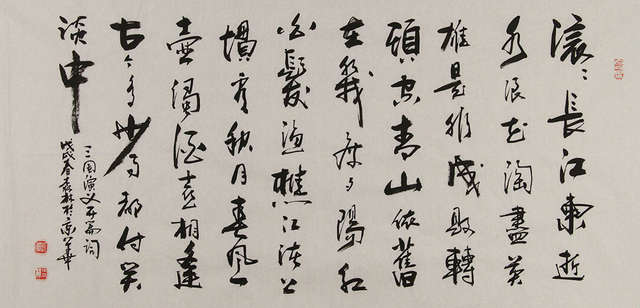 滚滚長江東逝
水浪花淘盡英
雄是非成敗轉
頭空青山依舊
在幾度夕陽紅
白髮漁樵江渚上
慣看秋月春風
壺濁酒喜相逢
古今多少事都付笑
談中
三国演义开篇词
戊戌春森林於京華